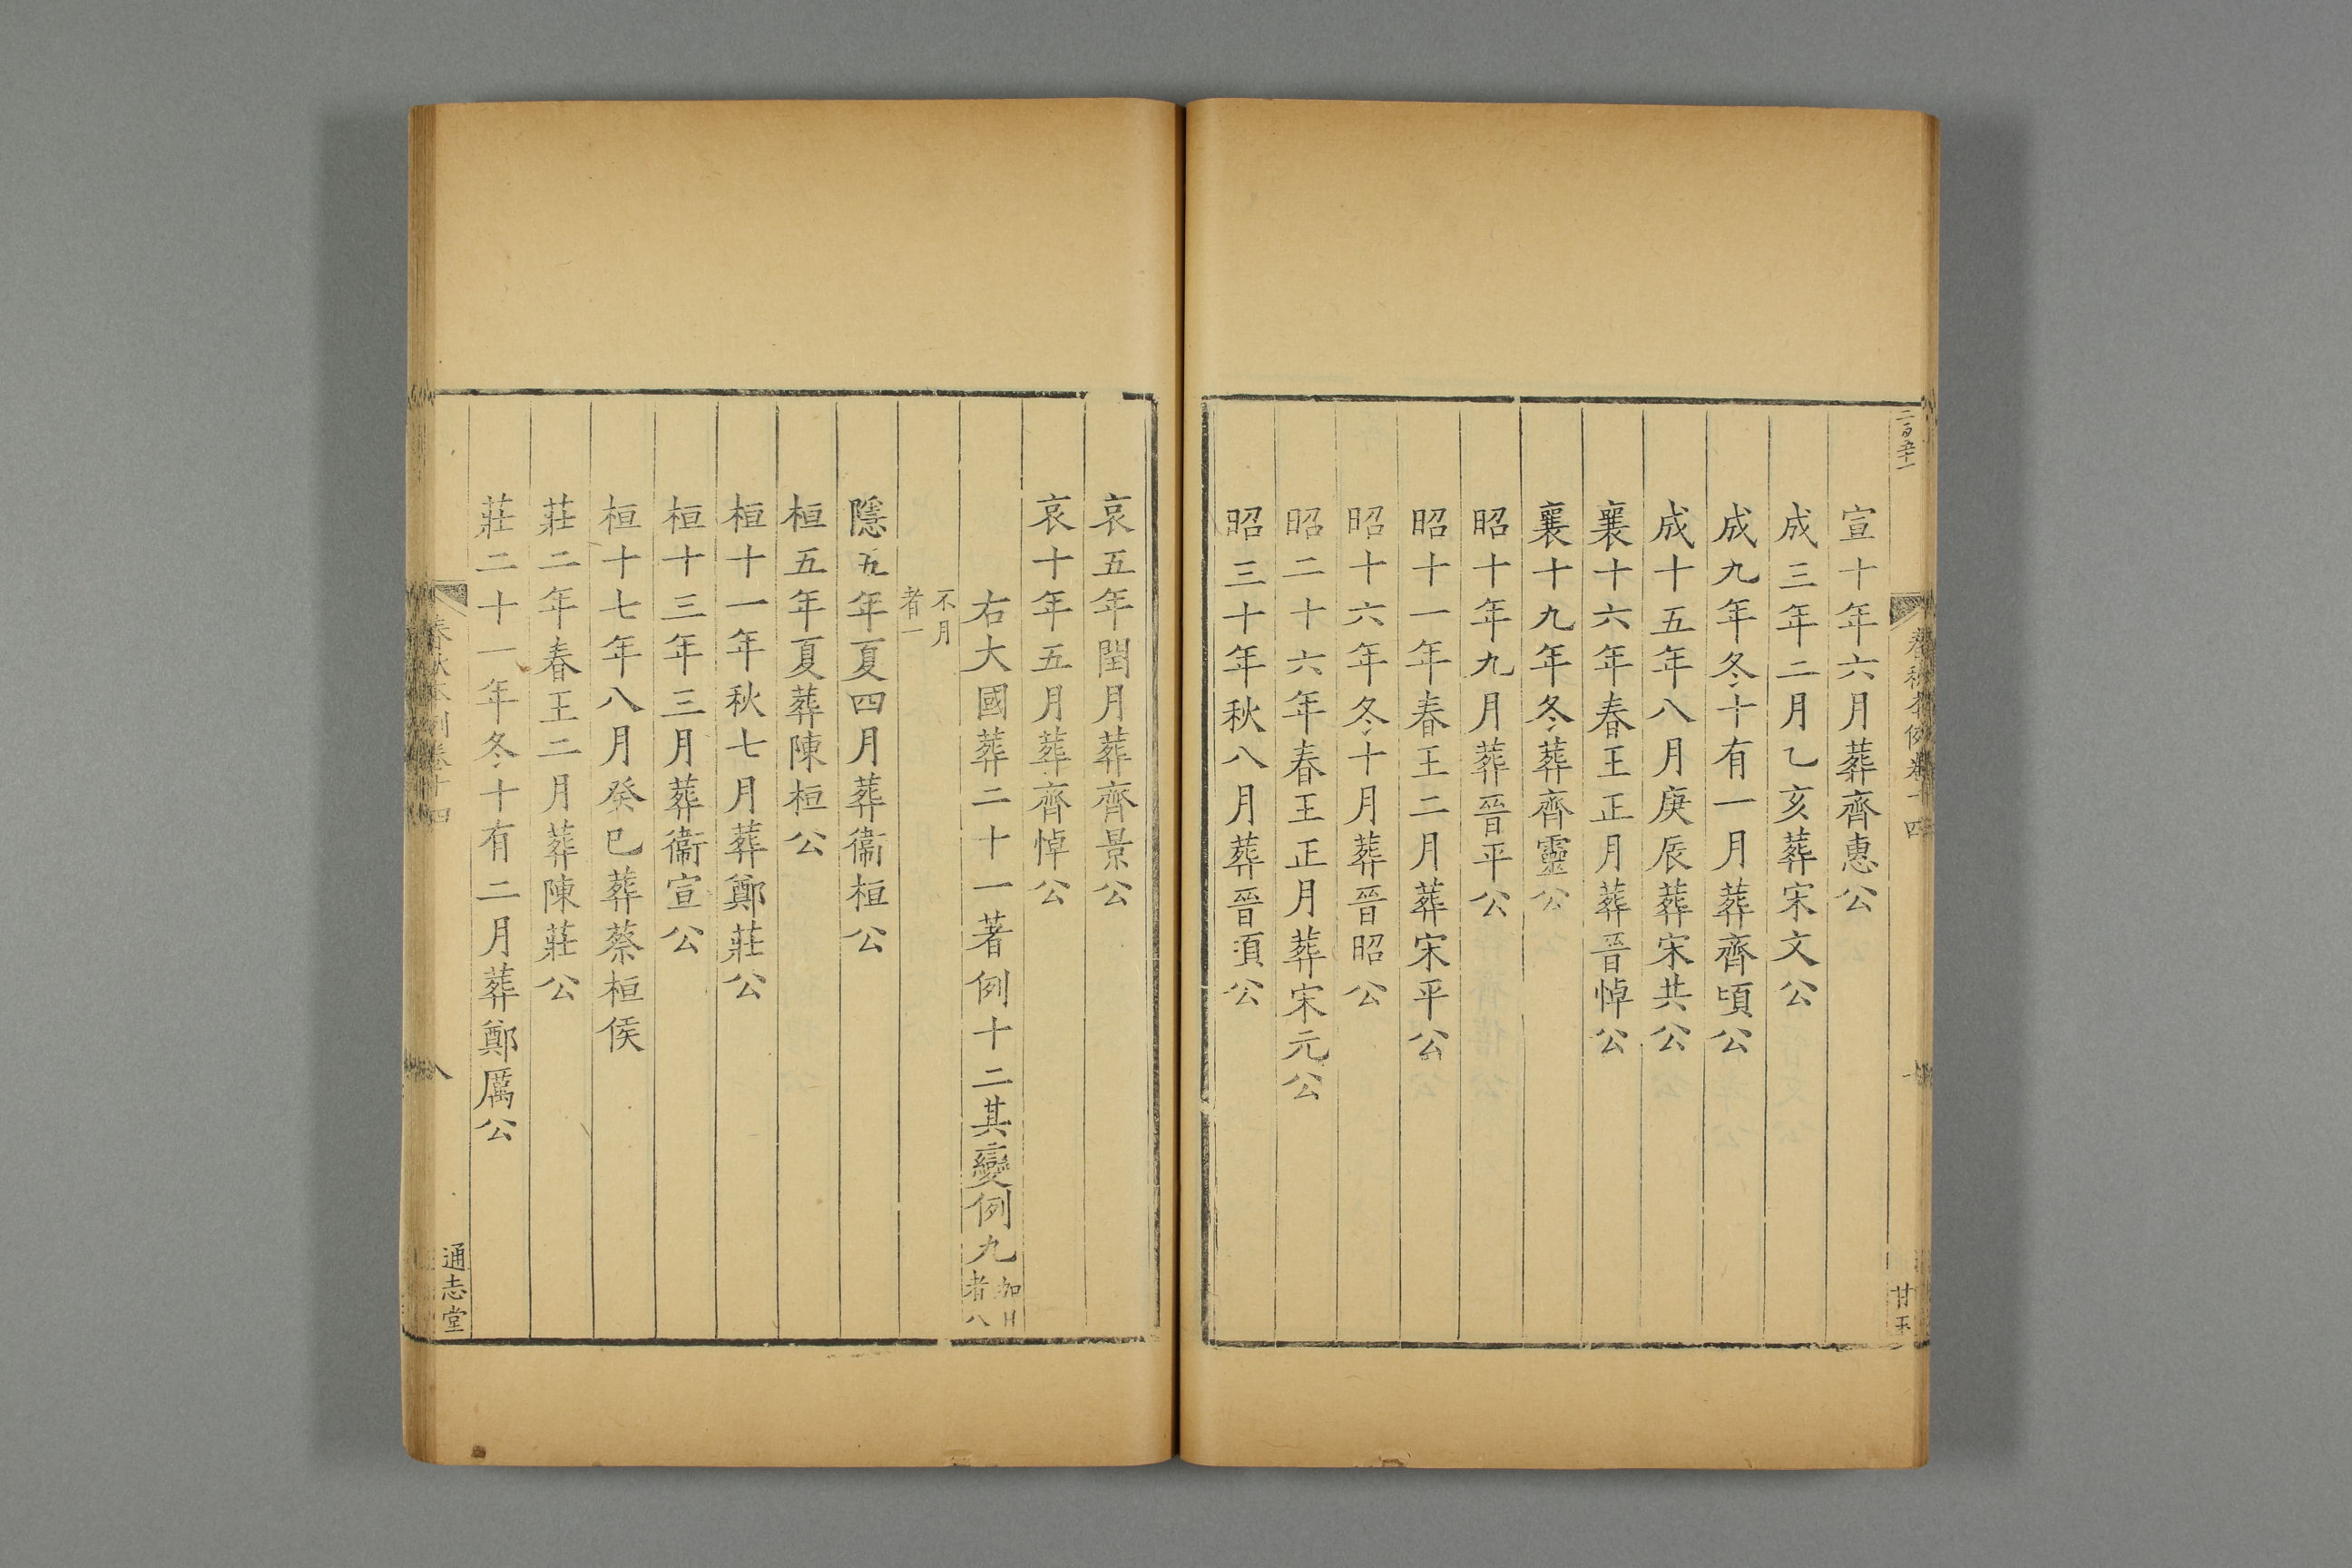 二百五十一
春秋本例卷十四
甘玉
宣十年六月葬齊惠公
成三年二月乙亥葬宋文公
成九年冬十有一月葬齊頃公
成十五年八月庚辰葬宋共公
襄十六年春王正月葬晉悼公
襄十九年冬葬齊靈公
昭十年九月葬晉平公
昭十一年春王二月葬宋平公
昭十六年冬十月葬晉昭公
昭二十六年春王正月葬宋元公
昭三十年秋八月葬晉湏公
哀五年閏月葬齊景公
哀十年五月葬齊悼公
右大國葬二十一著例十二其變例九加日者八
不月者一
隱五年夏四月葬衞桓公
桓五年夏葬陳桓公
桓十一年秋七月葬鄭莊公
桓十三年三月葬衞宣公
桓十七年八月癸巳葬蔡桓侯
莊二年春王二月葬陳莊公
莊二十一年冬十有二月葬鄭厲公
春秋本例卷十四
八
通志堂